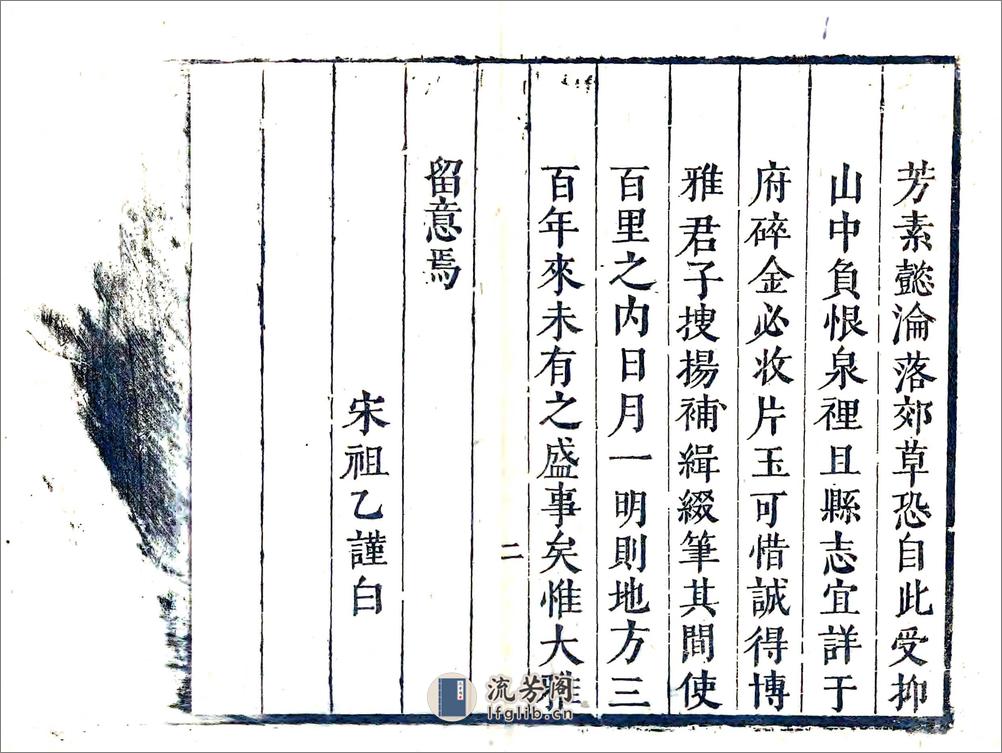 芳素懿淪落郊草恐自此受抑
山中負恨泉裡且縣志宜詳于
府碎金必收片玉可惜誠得博
雅君子搜揚補緝綴筆其間使
百里之内日月一明則地方三
百年來未有之盛事矣惟大雅
留意焉
宋祖乙謹白
二
流芳阁
lfglib.cn